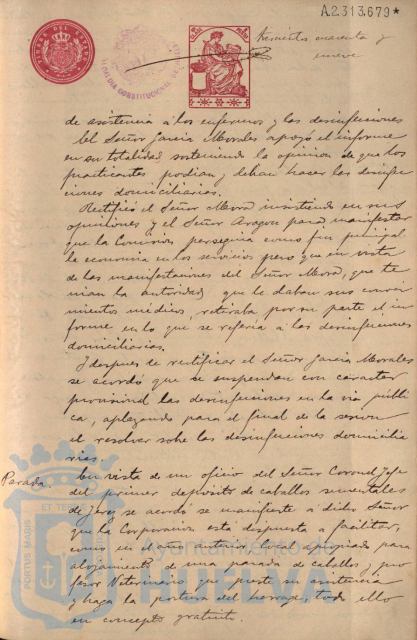 A.2.313.679*
Trescientos cuarenta y
nueve
TIMBRE DEL ESTADO
ALCALDIA CONSTITUCIONAL DE
de asistencia á los enfermos y las desinfecciones
El Señor García Morales apoyó el informe
en su totalidad sosteniendo la opinion de que los
practicantes podian y debian hacer las desinfec
ciones domiciliarias.
Rectificó el Señor Mora insistiendo en sus
opiniones y el Señor Aragon para manifestar
que la Comision perseguia como fin principal
la economia en los servicios pero que en vista
de las manifestaciones del Señor Mora, que te
nian la autoridad que le daban sus conoci
mientos médicos, retiraba por su parte el in
forme en lo que se referia á las desinfecciones
domiciliarias.
Y despues de rectificar el Señor García Morales
se acordó que se suspendan con caracter
provisional las desinfecciones en la via públi
ca, aplazando para el final de la sesion
el resolver sobre las desinfecciones domicilia
rias.
Parada.
En vista de un oficio del Señor Coronel Jefe
del primer depósito de caballos sementales
de Jerez se acordó se manifieste á dicho Señor
que la Corporacion está dispuesta á facilitar,
como en el año anterior, local apropiado para
alojamiento de una parada de caballos, pro
fesor Veterinario que preste su asistencia
y haga la postura del herraje, todo ello
en concepto gratuito.
PORTUS MARIS ET TER
Ayuntamiento de
HUELVA